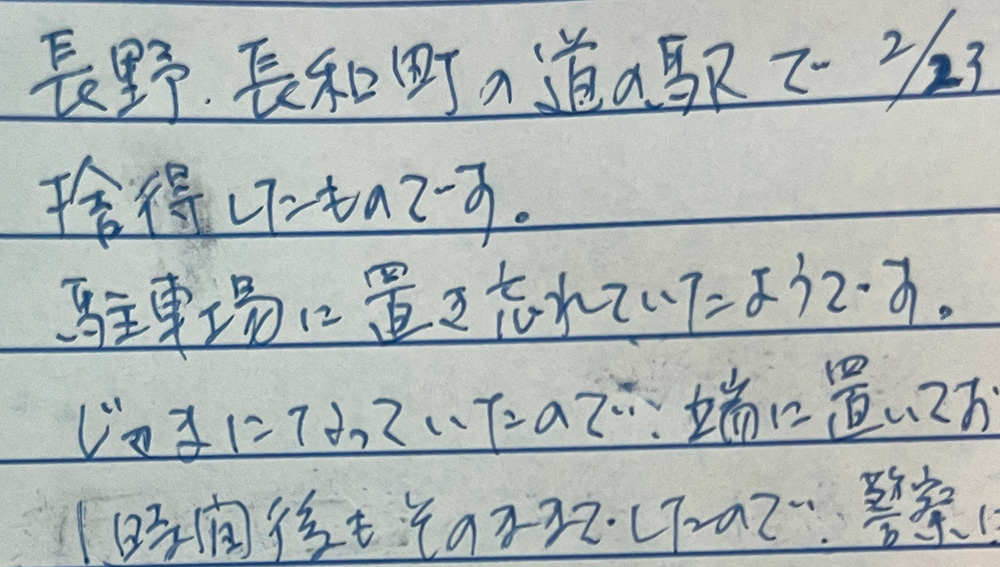 長野.長和町の道の駅で 2/23
拾得したものです。
駐車場に置き忘れていたようです。
じゃまになっていたので、端に置いてお
1時間後もそのままでしたので、警察に